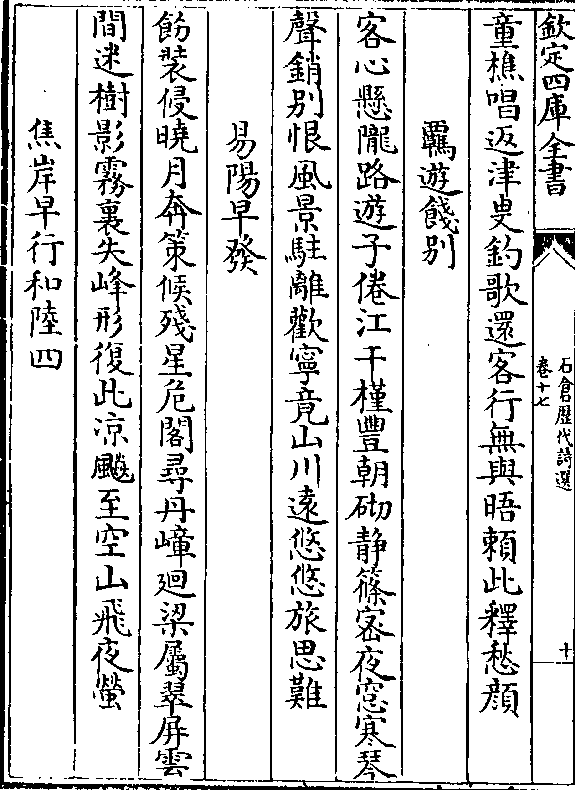 欽定四庫全書
石倉歷代詩選
卷十七
十
童樵唱返津叟釣歌還客行無與晤賴此釋愁顔
羈遊餞别
客心懸隴路遊子倦江干槿豐朝砌静篠宻夜窓寒琴
聲銷别恨風景駐離歡寧竟山川遠悠悠旅思難
易陽早發
飭裝侵曉月奔策候殘星危閣尋丹嶂廻梁屬翠屏雲
間迷樹影霧裏失峰形復此凉飈至空山飛夜螢
焦岸早行和陸四